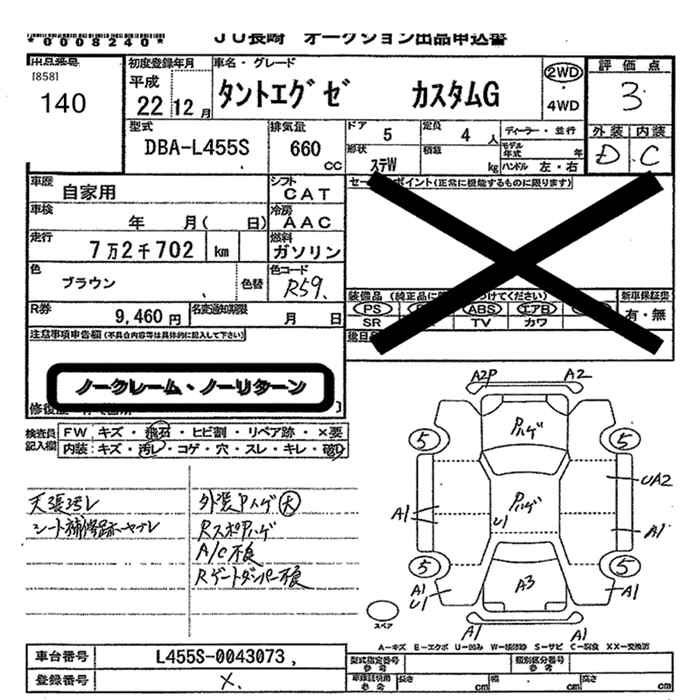 *0008240*
JU長崎 オークション出品申込書
出品番号
[858]
140
初度登録年月
平成
22 12 月
車名・グレード
タントエグゼ カスタムG
2WD
・
4WD
評価点
3
外装 内装
D C
型式
DBA-L455S
排気量
660
CC
ドア 5
定員 4 人
ディーラー・並行
形状
ステW
積載 kg
モデル年式 年
ハンドル 左・右
車歴
自家用
シフト
CAT
セールスポイント(正常に機能するものに限ります)
車検
年 月( 日)
冷房
AAC
走行
7万2千702 km
燃料
ガソリン
色
ブラウン
色替
色コード
R59
装備品
新車保証書
有・無
PS ABS エアB
SR TV カワ
R券
9,460 円
名変通知期限
月 日
注意事項申告欄(不具合内容等は具体的に記入して下さい)
ノークレーム・ノーリターン
検査員記入欄
FW キズ・飛石・ヒビ割・リペア跡・×要
内装:キズ・汚レ・コゲ・穴・スレ・キレ・破レ
天張汚レ
シート補修跡
外装Pハゲ 大
RスポPハゲ
A/C不良
Rゲートダンパー不良
A2P A2
Pハゲ
5 5
UA2
A1
Pハゲ
U1
A1
5 5
A3
A1
U1
A1
A1 A1
スペア
A-キズ E-エクボ U-凹み W-補修跡 S-サビ C-腐食 XX-交換済
車台番号 L455S-0043073
登録番号 X
型式指定番号 参考
類別区分番号 参考
長さ cm 幅 cm 高さ cm